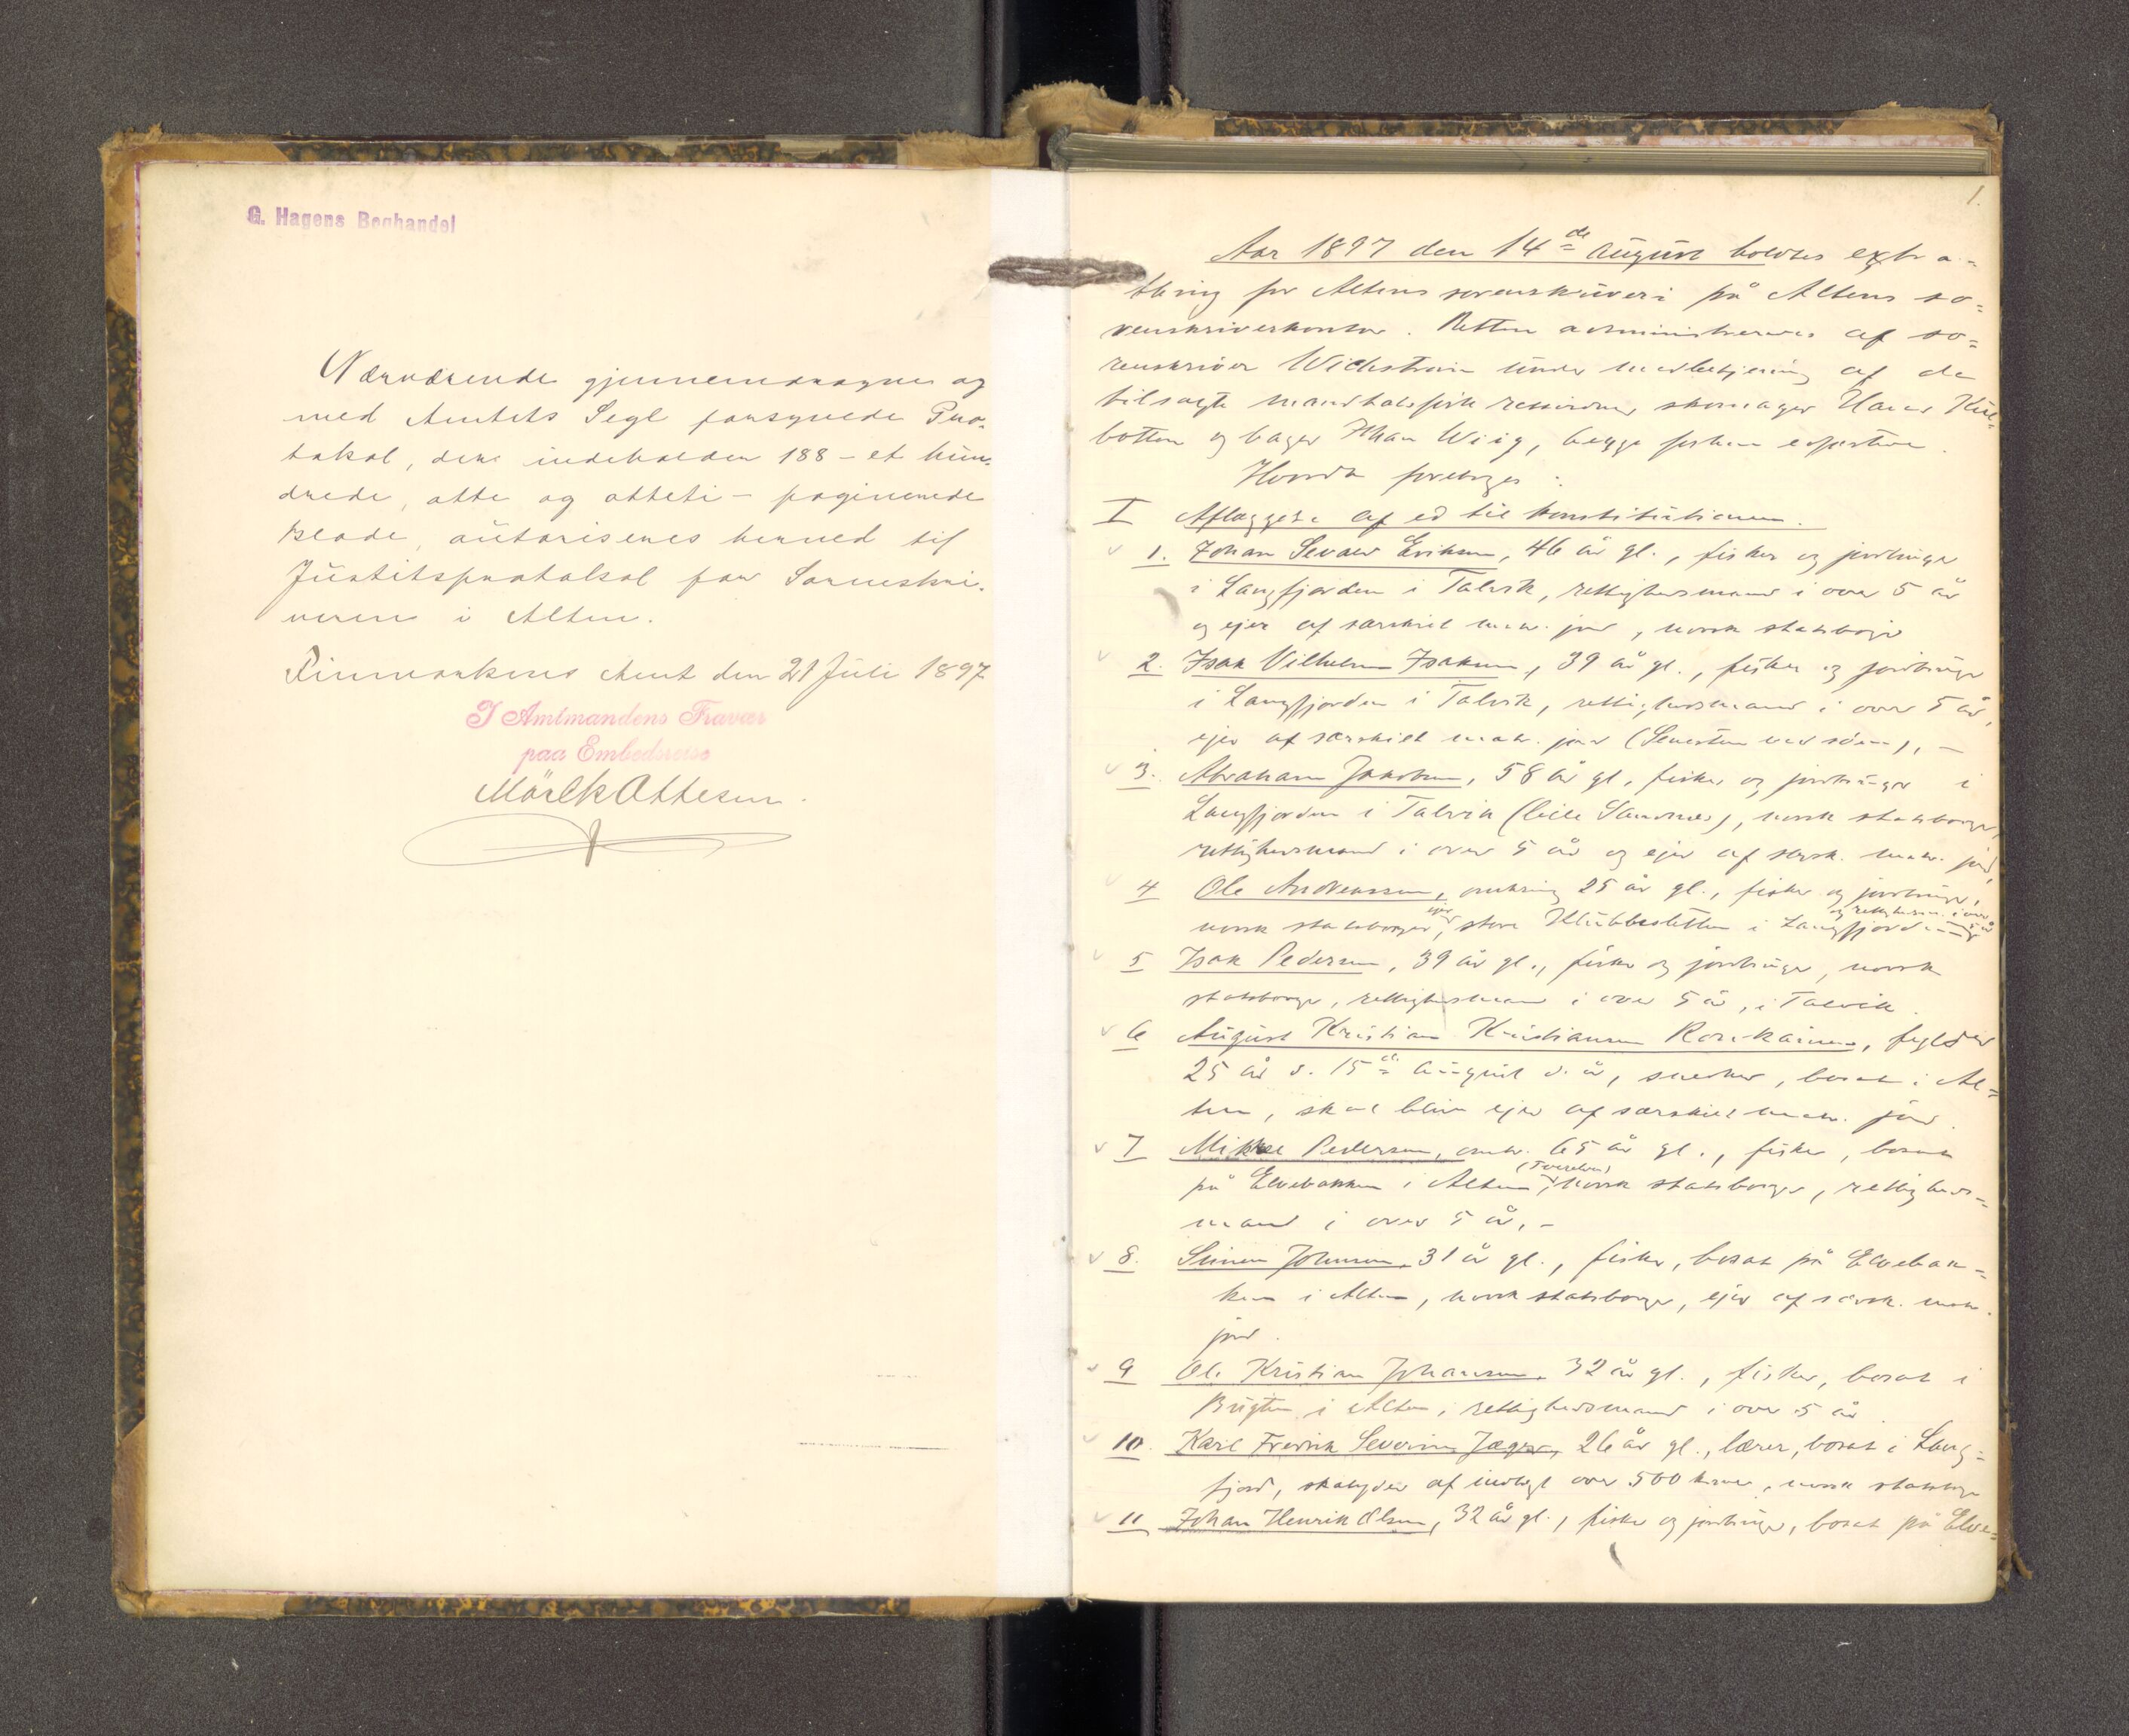 G. Hagens Boghandel
Nærværende gjennemdragne og
med Amtets Segl forsynede Pro-
tokol, der indeholder 188 - et hun-
drede, otte og otteti - paginerede
Blade, autoriseres herved til
Justitsprotokol for Sorenskri-
veren i Alten.
Finmarkens Amt den 21 Juli 1897
I Amtmandens Fravær
paa Embedsreise
Mörck Ottesen.
1.
Aar 1897 den 14de august holdtes extra-
thing for Altens sorenskriveri på Altens so-
renskriverkontor. Retten administreredes af so-
renskriver Wickstrøm under medbetjening af de
tilsagte mandtalsførte retsvidner skomager
botten og bager Johan Wiig, begge
Hvorda foretoges:
I Aflæggelse af ed til konstitutionen.
1. Johan Eriksen, 46 år gl., fisker og jordbruger
i Langfjorden i Talvik, rettighedsmand i over 5 år
og ejer af særskilt matr. jord, norsk statsborger
2. Isak Vilhelm Isaksen, 39 år gl., fisker og jordbruger
i Langfjorden i Talvik, rettighedsmand i over 5 år,
ejer af særskilt matr. jord
3. Abraham Jakobsen, 58 år gl., fisker og jordbruger i
Langfjorden i Talvik (lille Sandnes), norsk statsborger,
rettighedsmand i over 5 år og ejer af særsk. matr. jord,
4 Ole Andreassen, omkring 25 år gl., fisker og jordbruger,
og rettighedsm. i over 5 år
norsk statsborger, ejer store Klubbesletten i Langfjorden
5 Isak Pedersen, 39 år gl., fisker og jordbruger, norsk
statsborger, rettighedsmand i over 5 år, i Talvik.
6 August Kristian Kristiansen, fylder
25 år d. 15de august d. år, snedker, bosat i Al-
ten, skal blive ejer af særskilt matr. jord.
7 Mikkel Pedersen, omtr. 65 år gl., fisker, bosat
(Tverelven)
på Elvebakken i Alten, norsk statsborger, rettigheds-
mand i over 5 år, -
8. Simon Johnsen, 31 år gl., fisker, bosat på Elvebak-
ken i Alten, norsk statsborger, ejer af særsk. matr.
jord.
9 Ole Kristian Johansen, 32 år gl., fisker, bosat i
Bugten i Alten, rettighedsmand i over 5 år.
10. Karl Fredrik Severin Jæger, 26 år gl., lærer, bosat i Lang-
fjord, skatyder af indtægt over 500 kroner, norsk statsborger
11 Johan Henrik Olsen, 32 år gl., fisker og jordbruger, bosat på Elve-